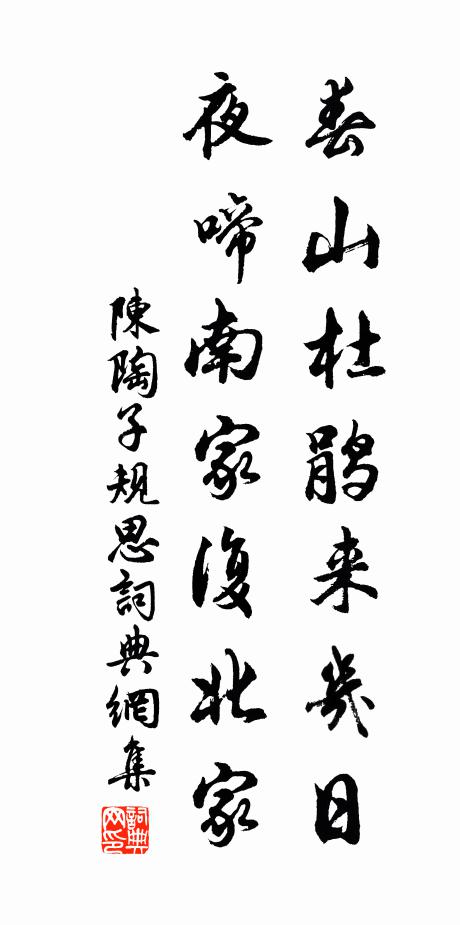 春山杜鵑来幾日
夜啼南家復北家
陳陶子規思詞典網集
詞典
网印